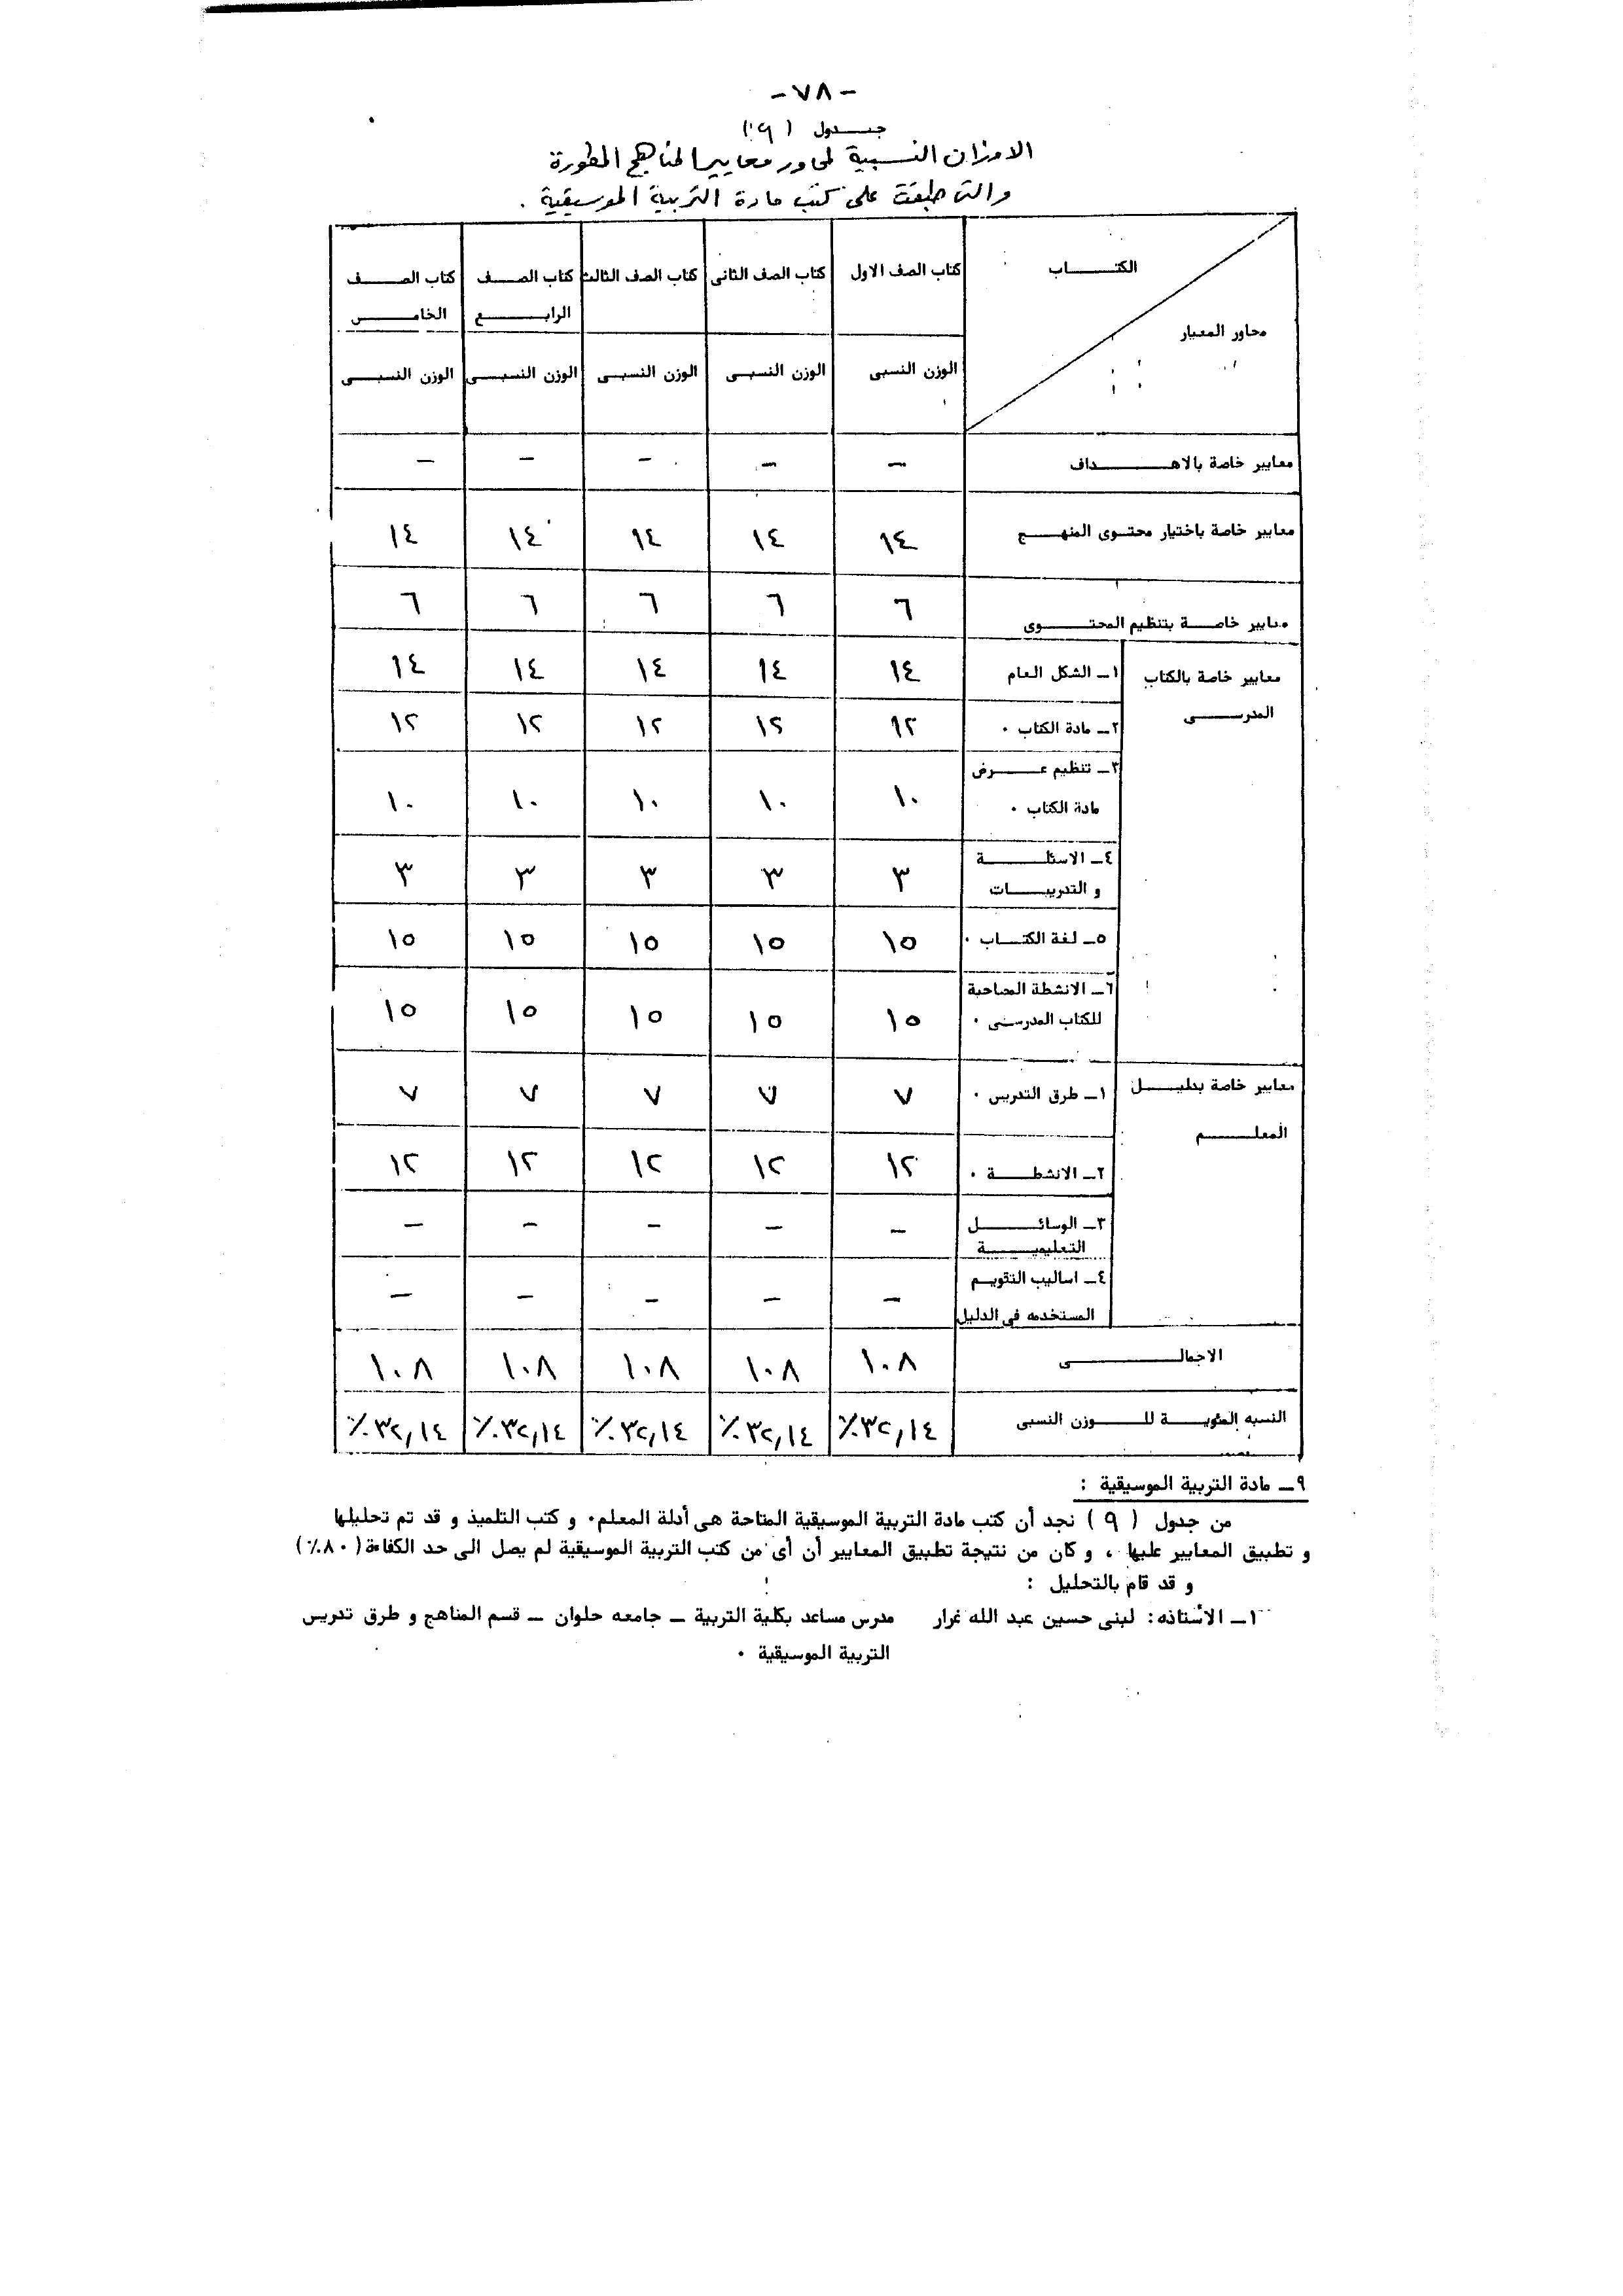 -٧٨-
جـــدول (٩)
الاوزان النسبية لمحاور معايير المناهج المطورة
والتى طبقت على كتب مادة التربية الموسيقية .
الكتـــاب
محاور المعيار
كتاب الصف الاول
كتاب الصف الثانى
كتاب الصف الثالث
كتاب الصـــف الرابـــع
كتاب الصـــف الخامـــس
الوزن النسبى
الوزن النسبـى
الوزن النسبـى
الوزن النسبـى
الوزن النسبـى
معايير خاصة بالاهـــداف – – – – –
معايير خاصة باختيار محتـوى المنهـــج ١٤ ١٤ ١٤ ١٤ ١٤
معايير خاصـــة بتنظيم المحتـــوى ٦ ٦ ٦ ٦ ٦
معايير خاصة بالكتاب المدرســـى
١ـ الشكل العام ١٤ ١٤ ١٤ ١٤ ١٤
٢ـ مادة الكتاب . ١٢ ١٢ ١٢ ١٢ ١٢
٣ـ تنظيم عـــرض مادة الكتاب . ١٠ ١٠ ١٠ ١٠ ١٠
٤ـ الاسئلـــة و التدريبـــات ٣ ٣ ٣ ٣ ٣
٥ـ لغة الكتـــاب . ١٥ ١٥ ١٥ ١٥ ١٥
٦ـ الانشطة المصاحبة للكتاب المدرســى . ١٥ ١٥ ١٥ ١٥ ١٥
معايير خاصة بدليـــل المعلـــم
١ـ طرق التدريس . ٧ ٧ ٧ ٧ ٧
٢ـ الانشطـــة . ١٢ ١٢ ١٢ ١٢ ١٢
٣ـ الوسائـــل التعليميـــة – – – – –
٤ـ اساليب التقويـم المستخدمه فى الدليل – – – – –
الاجمالـــى ١٠٨ ١٠٨ ١٠٨ ١٠٨ ١٠٨
النسبه المئويـــة للـــوزن النسبى ٣٢,١٤٪ ٣٢,١٤٪ ٣٢,١٤٪ ٣٢,١٤٪ ٣٢,١٤٪
٩ـ مادة التربية الموسيقية :
من جدول (٩) نجد أن كتب مادة التربية الموسيقية المتاحة هى أدلة المعلم. و كتب التلميذ و قد تم تحليلها
و تطبيق المعايير عليها ، و كان من نتيجة تطبيق المعايير أن أى من كتب التربية الموسيقية لم يصل الى حد الكفاءة (٨٠٪)
و قد قام بالتحليل :
١ـ الأستاذه: لبنى حسين عبد الله غرار مدرس مساعد بكلية التربية ـ جامعه حلوان ـ قسم المناهج و طرق تدريس
التربية الموسيقية .